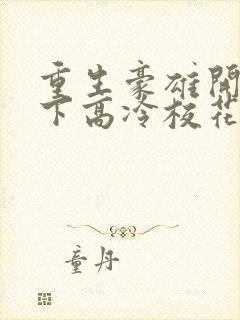 重生豪雄開
下高冷校花
童丹